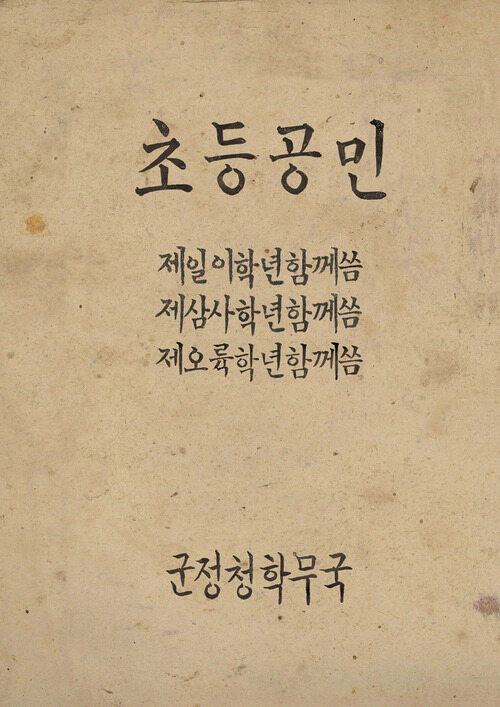 초등공민
제일이학년함께씀
제삼사학년함께씀
제오륙학년함께씀
군정청학무국